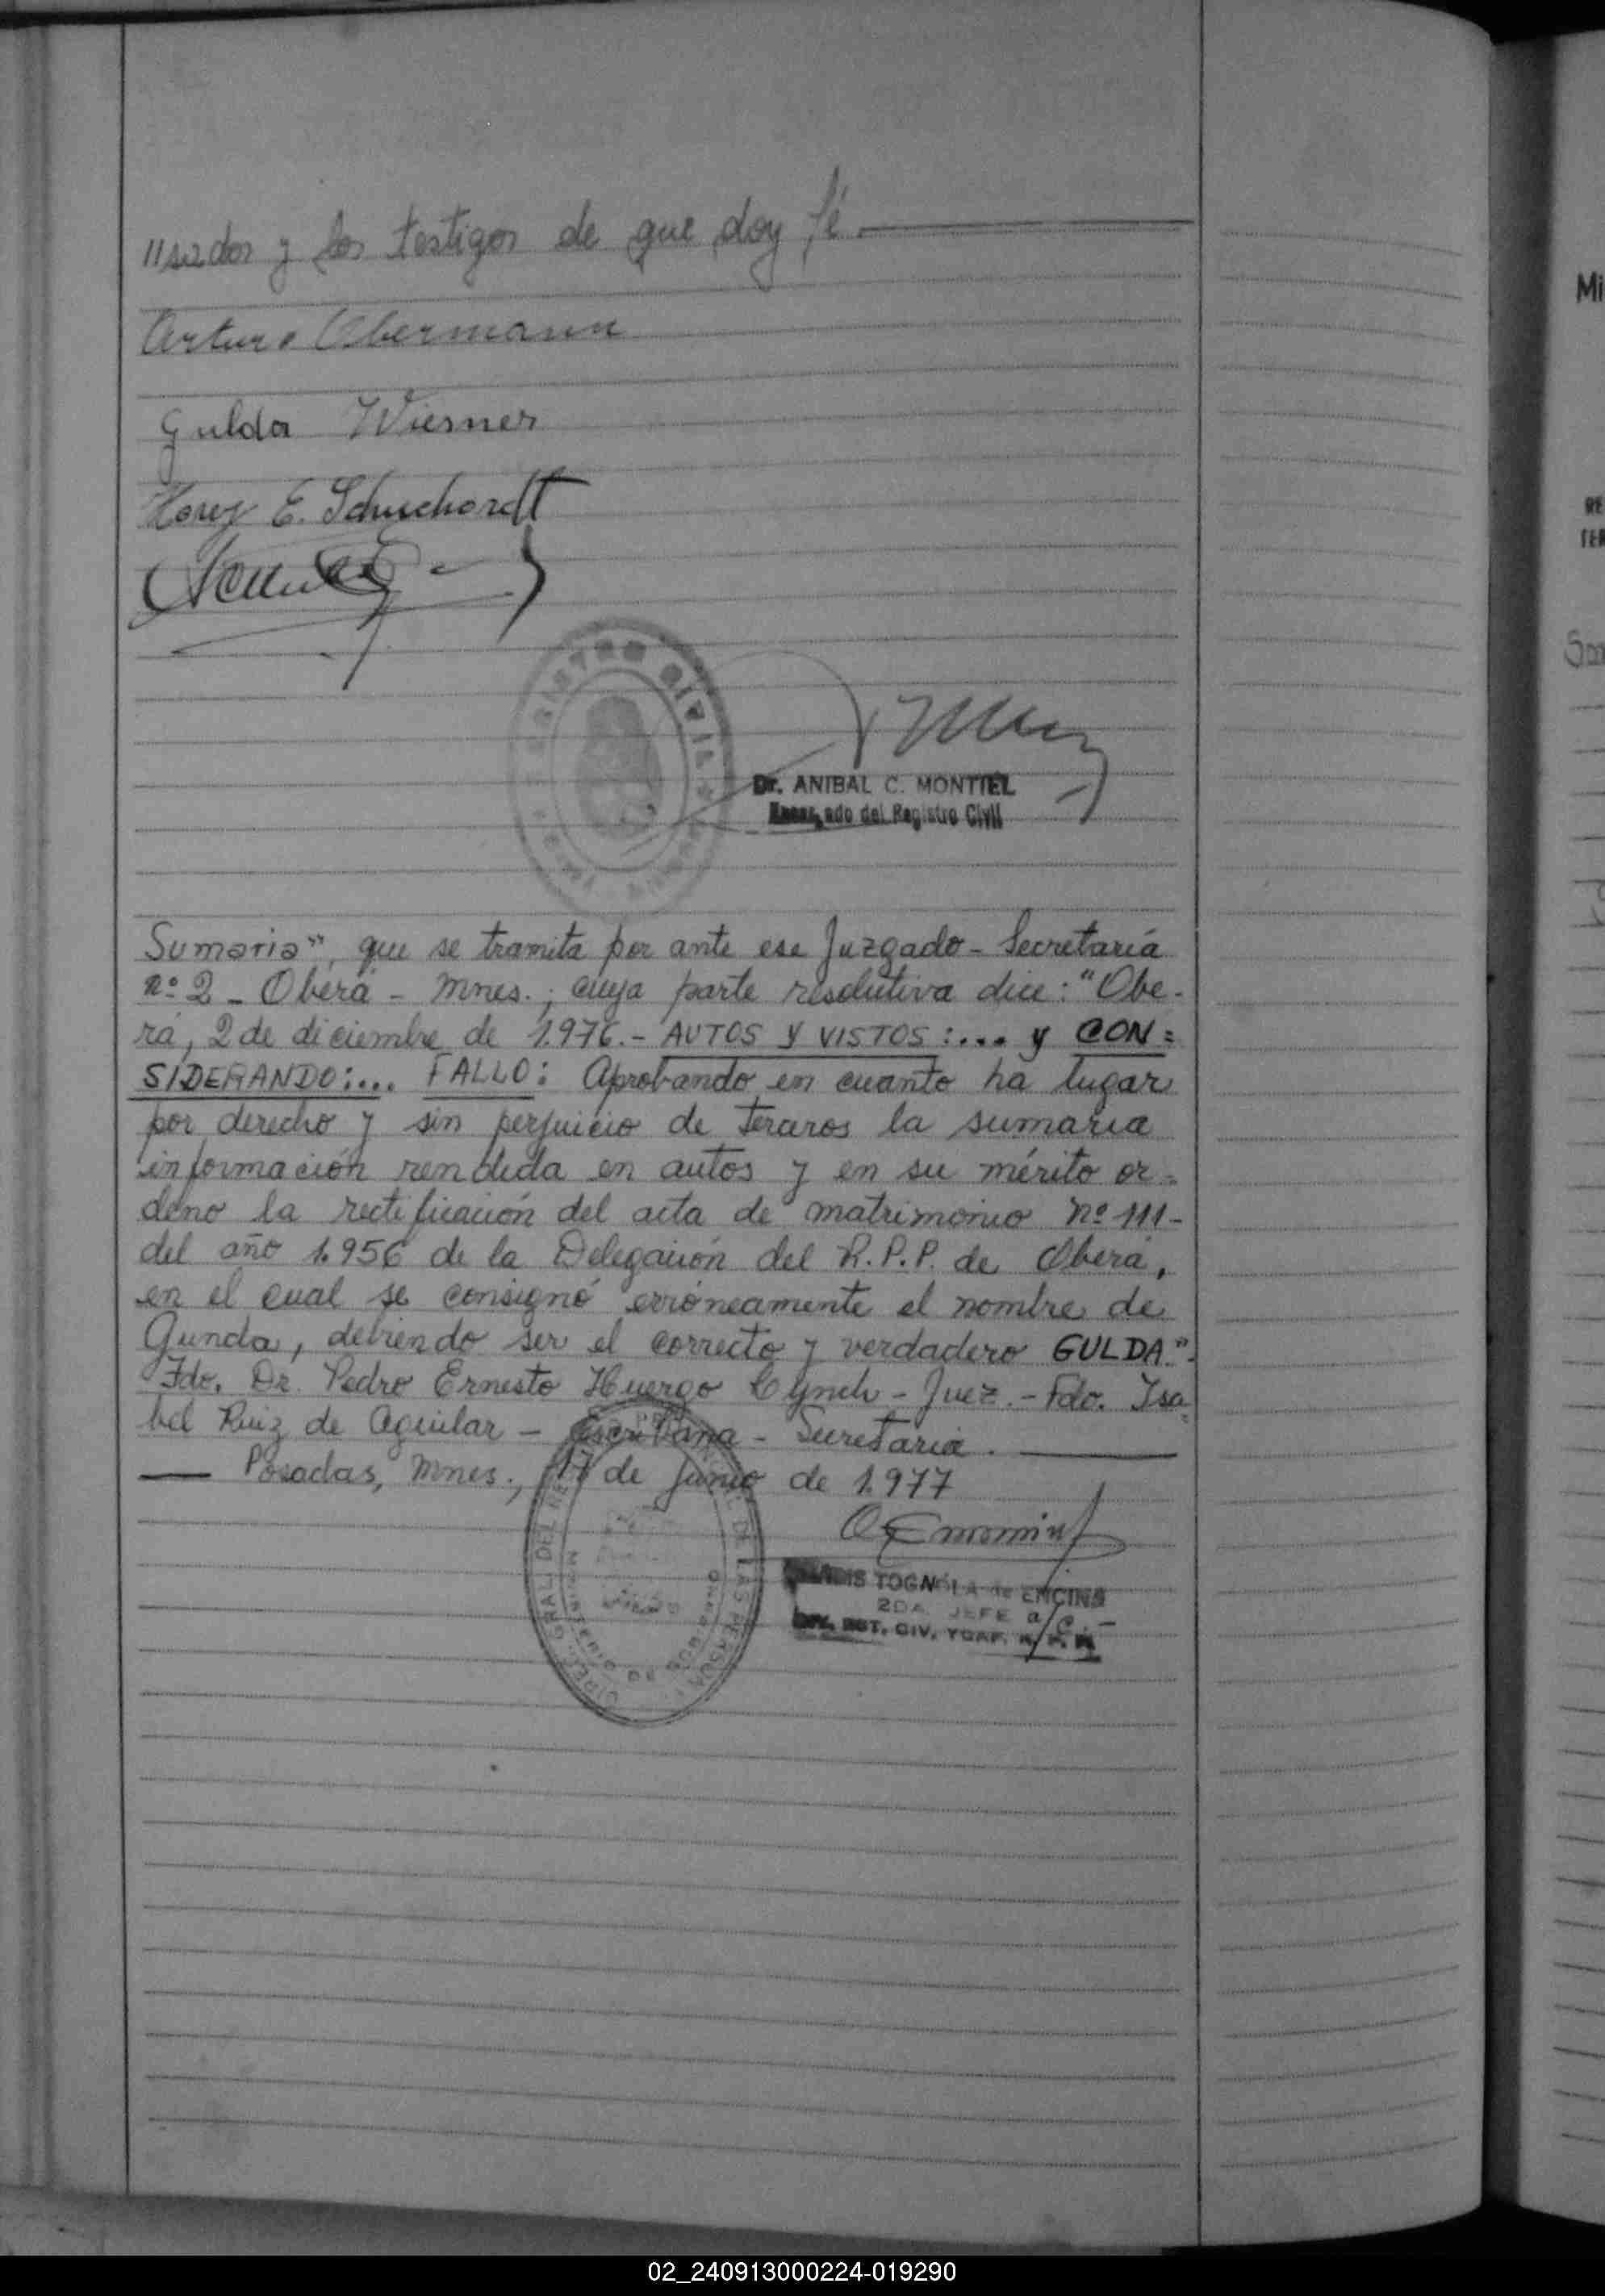 "sados y los testigos de que doy fé.
Arturo Obermann
Gulda Wiesner
E. Schuchardt
REGISTRO CIVIL
Dr. ANIBAL C. MONTIEL
Encargado del Registro Civil
Sumaria", que se tramita por ante ese Juzgado - Secretaría
nº 2 - Oberá - Mnes.; cuya parte resolutiva dice: "Obe-
rá, 2 de diciembre de 1.976.- AUTOS Y VISTOS:... y CON=
SIDERANDO:... FALLO: Aprobando en cuanto ha lugar
por derecho y sin perjuicio de terceros la sumaria
información rendida en autos y en su mérito or-
deno la rectificación del acta de matrimonio Nº 111-
del año 1.956 de la Delegación del R.P.P. de Oberá,
en el cual se consignó erróneamente el nombre de
Gunda, debiendo ser el correcto y verdadero GULDA".
Fdo. Dr. Pedro Ernesto Huergo Lynch - Juez. - Fdo. Isa-
bel Ruiz de Aguilar - Escribana - Secretaria.
Posadas, Mnes., 17 de Junio de 1.977
TOGNOLA de ENCINA
2DA. JEFE a/c.-
Mi
RE
TER
02_240913000224-019290